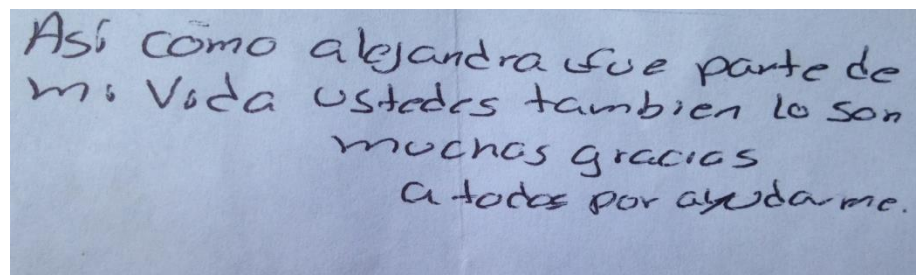 Así como alejandra fue parte de
mi Vida ustedes tambien lo son
muchas gracias
a todos por ayudarme.